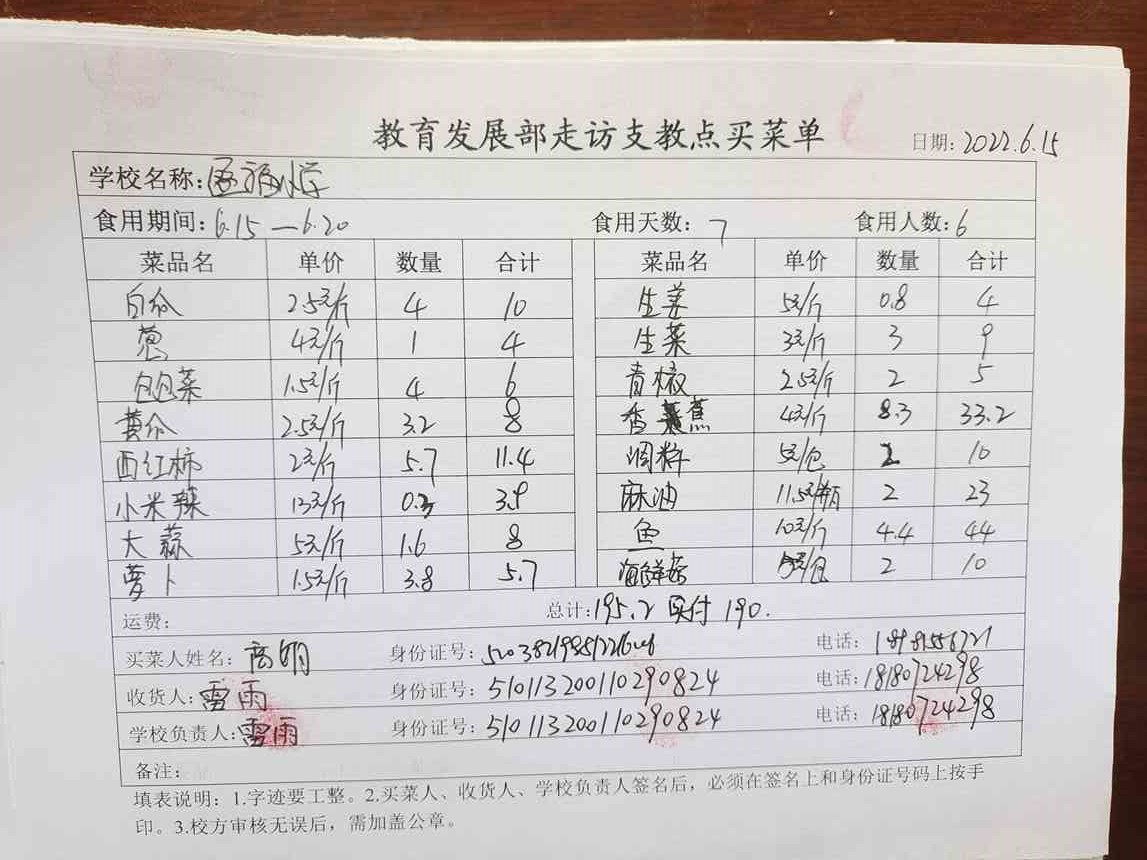 教育发展部走访支教点买菜单
日期: 2022.6.15
学校名称: 五福小学
食用期间: 6.15—6.20 食用天数: 7 食用人数: 6
菜品名 单价 数量 合计 菜品名 单价 数量 合计
白瓜 2.5元/斤 4 10 生姜 5元/斤 0.8 4
葱 4元/斤 1 4 生菜 3元/斤 3 9
包包菜 1.5元/斤 4 6 青椒 2.5元/斤 2 5
黄瓜 2.5元/斤 3.2 8 香蕉 4元/斤 8.3 33.2
西红柿 2元/斤 5.7 11.4 调料 5元/包 2 10
小米辣 13元/斤 0.3 3.9 麻油 11.5元/瓶 2 23
大蒜 5元/斤 1.6 8 鱼 10元/斤 4.4 44
萝卜 1.5元/斤 3.8 5.7 海鲜菇 5元/包 2 10
运费: 总计: 195.2 实付 190.
买菜人姓名: 高明 身份证号: 电话:
收货人: 雷雨 身份证号: 510113200110290824 电话: 18180724298
学校负责人: 雷雨 身份证号: 510113200110290824 电话: 18180724298
备注:
填表说明: 1.字迹要工整。2.买菜人、收货人、学校负责人签名后，必须在签名上和身份证号码上按手
印。3.校方审核无误后，需加盖公章。